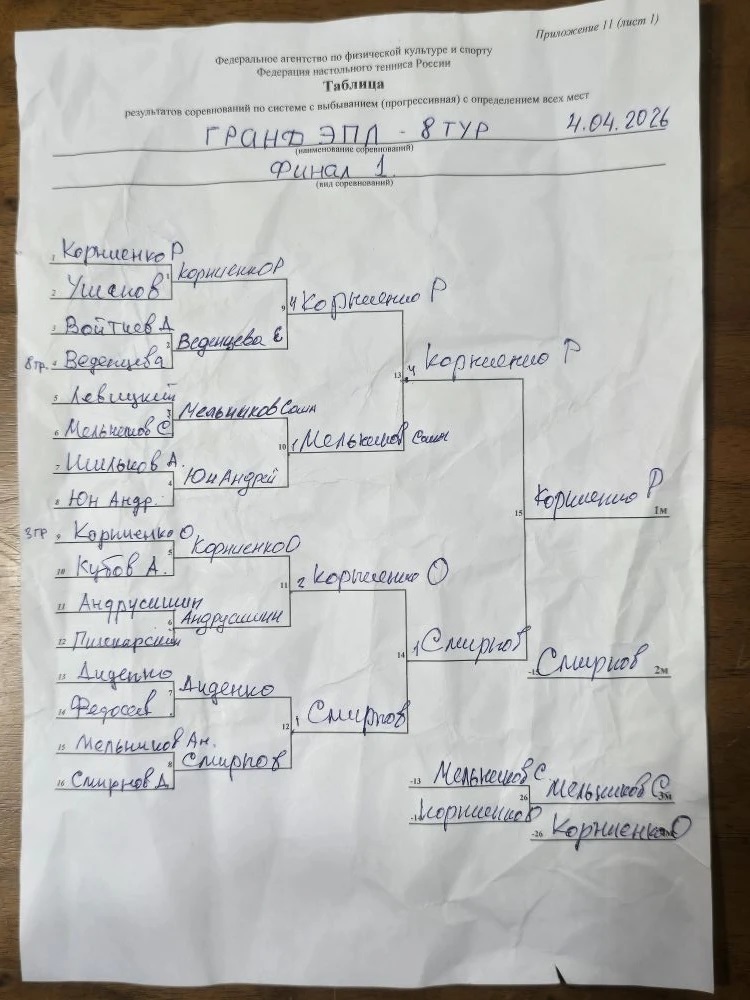 Приложение 11 (лист 1)
Федеральное агентство по физической культуре и спорту
Федерация настольного тенниса России
Таблица
результатов соревнований по системе с выбыванием (прогрессивная) с определением всех мест
ГРАНД ЭПЛ - 8 ТУР 4.04.2026
(наименование соревнований)
Финал 1
(вид соревнований)
1 Корниенко Р
2 Ушаков
1 Корниенко Р
3 Войтиев Д
8гр. 4 Веденцева
2 Веденцева Е
9 4 Корниенко Р
5 Левицкий
6 Мельников С
3 Мельников Саша
7 Шильков А.
8 Юн Андр.
4 Юн Андрей
10 1 Мельников Саша
13 4 Корниенко Р
9 Корниенко О
10 Кубов А.
5 Корниенко О
11 Андрусишин
12 Пискарский
6 Андрусишин
11 2 Корниенко О
13 Диденко
14 Федосеев
7 Диденко
15 Мельников Ан.
16 Смирнов Д
8 Смирнов
12 1 Смирнов
14 1 Смирнов
15 Корниенко Р 1м
-15 Смирнов 2м
-13 Мельников С
-14 Корниенко О
26 Мельников С 3м
-26 Корниенко О